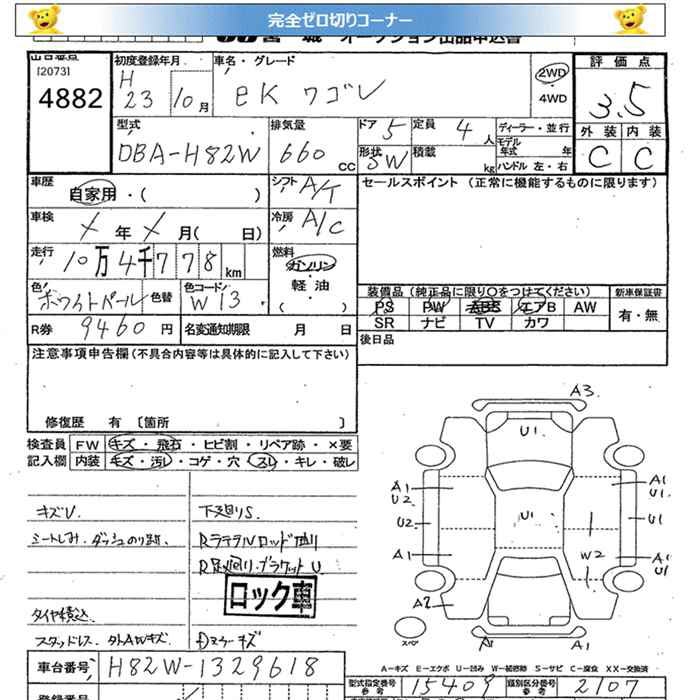 完全ゼロ切りコーナー
宮城 オークション出品申込書
[2073]
4882
初度登録年月
H 23 10月
車名・グレード
eK ワゴン
2WD
4WD
評価点
3.5
外装 内装
C C
型式
DBA-H82W
排気量
660 CC
ドア 5
定員 4人
形状 5W
積載 kg
ディーラー・並行
モデル年式 年
ハンドル 左・右
車歴
自家用・( )
シフト A/T
セールスポイント (正常に機能するものに限ります)
車検
X年X月( 日)
冷房 A/C
走行
10万4千778km
燃料
ガソリン・軽油・( )
色 ホワイトパール
色替
色コード W13
装備品 (純正品に限り○をつけてください)
新車保証書
PS PW ABS エアB AW
有・無
SR ナビ TV カワ
R券 9460円
名変通知期限 月 日
後日品
注意事項申告欄 (不具合内容等は具体的に記入して下さい)
修復歴 有 〔箇所 〕
検査員 FW キズ・飛石・ヒビ割・リペア跡・×要
記入欄 内装 キズ・汚れ・コゲ・穴・スレ・キレ・破レ
キズU
シートしみ、ダッシュのり跡、
タイヤ積込
スタッドレス、外AWキズ
下廻りS
Rラテラルロッド曲り
R足廻り、ブラケットU
ロック車
Dミラーキズ
A3
U1
A1
U2
A1
U1
U2
U1
U1
A1
W2
A1
U1
A2
スペ
A1
A1
A-キズ E-エクボ U-凹み W-補修跡 S-サビ C-腐食 XX-交換済
車台番号 H82W-1329618
型式指定番号 15409
類別区分番号 2107
登録番号